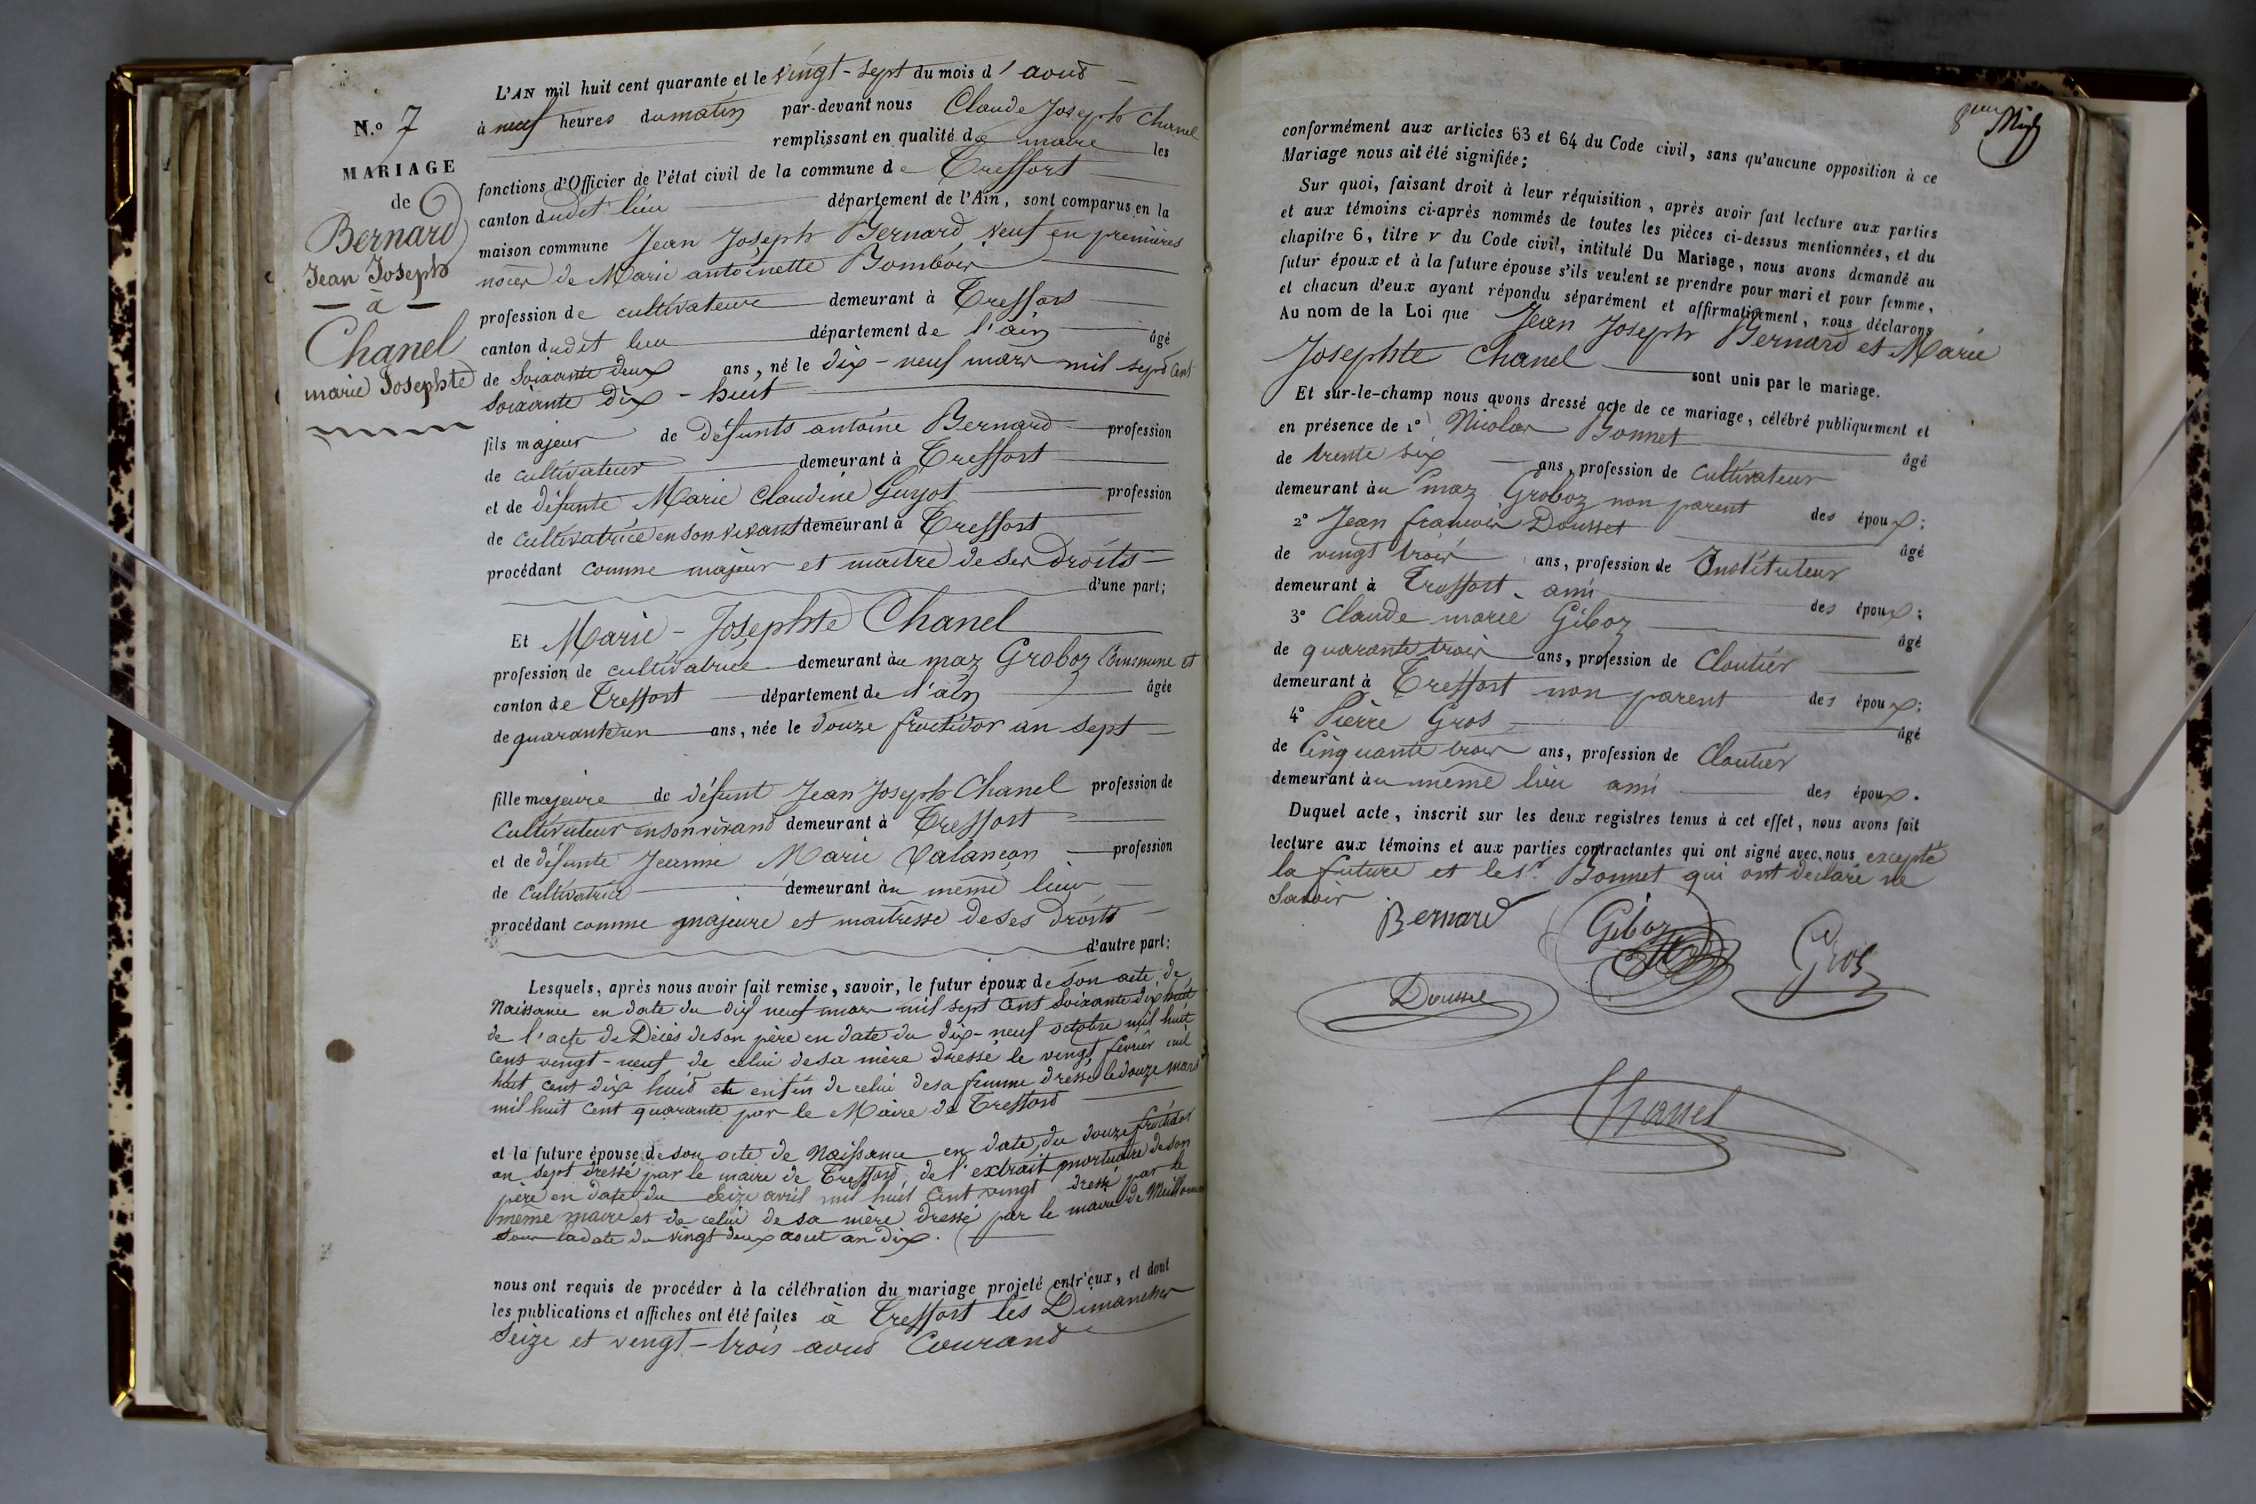 N.o 7
MARIAGE
de
Bernard
Jean Joseph
— à —
Chanel
marie Josephte
L'AN mil huit cent quarante et le vingt-sept du mois d'aout
à neuf heures du matin par-devant nous Claude Joseph Chanel
remplissant en qualité de maire les
fonctions d'Officier de l'état civil de la commune de Treffort
canton dudit lieu département de l'Ain, sont comparus en la
maison commune Jean Joseph Bernard veuf en premières
noces de Marie antoinette Bomboir
profession de cultivateur demeurant à Treffort
canton dudit lieu département de l'ain âgé
de soixante deux ans, né le dix-neuf mars mil sept cent
soixante dix-huit
fils majeur de défunts antoine Bernard profession
de cultivateur demeurant à Treffort
et de défunte Marie Claudine Guyot profession
de cultivatrice en son vivant demeurant à Treffort
procédant comme majeur et maitre de ses droits
d'une part;
Et Marie-Josephte Chanel
profession de cultivatrice demeurant au maz Groboz Commune et
canton de Treffort département de l'ain âgée
de quarante un ans, née le douze fructidor an sept
fille majeure de défunt Jean Joseph Chanel profession de
cultivateur en son vivant demeurant à Treffort
et de défunte Jeanne Marie Valançon profession
de cultivatrice demeurant au même lieu
procédant comme majeure et maitresse de ses droits
d'autre part:
Lesquels, après nous avoir fait remise, savoir, le futur époux de son acte de
Naissance en date du dix neuf mars mil sept cent soixante dix huit
de l'acte de Décès de son père en date du dix-neuf octobre mil huit
cent vingt-neuf, de celui de sa mère dressé le vingt février mil
huit cent dix huit et enfin de celui de sa femme dressé le douze mars
mil huit cent quarante par le Maire de Treffort
et la future épouse de son acte de Naissance en date du douze fructidor
an sept dressé par le maire de Treffort, de l'extrait mortuaire de son
père en date du seize avril mil huit cent vingt dressé par le
même maire et de celui de sa mère dressé par le maire de Meillonnas
sous la date du vingt deux aout an dix.
nous ont requis de procéder à la célébration du mariage projeté entr'eux, et dont
les publications et affiches ont été faites à Treffort les Dimanches
seize et vingt-trois aout Courant
8eme
conformément aux articles 63 et 64 du Code civil, sans qu'aucune opposition à ce
Mariage nous ait été signifiée;
Sur quoi, faisant droit à leur réquisition, après avoir fait lecture aux parties
et aux témoins ci-après nommés de toutes les pièces ci-dessus mentionnées, et du
chapitre 6, titre v du Code civil, intitulé Du Mariage, nous avons demandé au
futur époux et à la future épouse s'ils veulent se prendre pour mari et pour femme,
et chacun d'eux ayant répondu séparément et affirmativement, nous déclarons
Au nom de la Loi que Jean Joseph Bernard et Marie
Josephte Chanel sont unis par le mariage.
Et sur-le-champ nous avons dressé acte de ce mariage, célébré publiquement et
en présence de 1° Nicolas Bonnet âgé
de trente six ans, profession de cultivateur
demeurant au maz Groboz non parent des époux;
2° Jean francois Dousset âgé
de vingt trois ans, profession de Instituteur
demeurant à Treffort ami des époux;
3° Claude marie Giboz âgé
de quarante trois ans, profession de Cloutier
demeurant à Treffort non parent des époux;
4° Pierre Gros âgé
de cinquante trois ans, profession de Cloutier
demeurant au même lieu ami des époux.
Duquel acte, inscrit sur les deux registres tenus à cet effet, nous avons fait
lecture aux témoins et aux parties contractantes qui ont signé avec nous excepté
la future et le Sr Bonnet qui ont déclaré ne
savoir
Bernard Giboz Gros
Dousset
Chanel